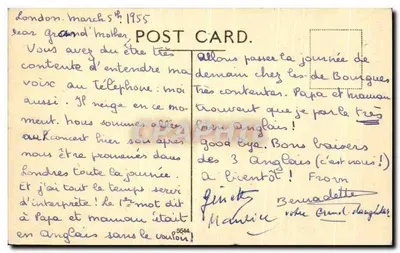 London. March 5th. 1955
POST CARD.
Dear Grand'mother,
Vous avez du être très
contente d'entendre ma
voix au Téléphone: moi
aussi. Il neige en ce mo-
ment. Nous sommes allés
au concert hier soir après
nous être promenés dans
Londres toute la journée.
Et j'ai tout le temps servi
d'interprète! Le 1er mot dit
à Papa et maman était
en Anglais sans le vouloir!
5544
allons passer la journée de
demain chez les de Bourgues
Très contentes. Papa et maman
trouvent que je parle très
bien anglais!
good bye. Bons baisers
des 3 Anglais (c'est nous!)
A bientôt! From
Ginette Bernadette
Maurice votre Grand-daughter